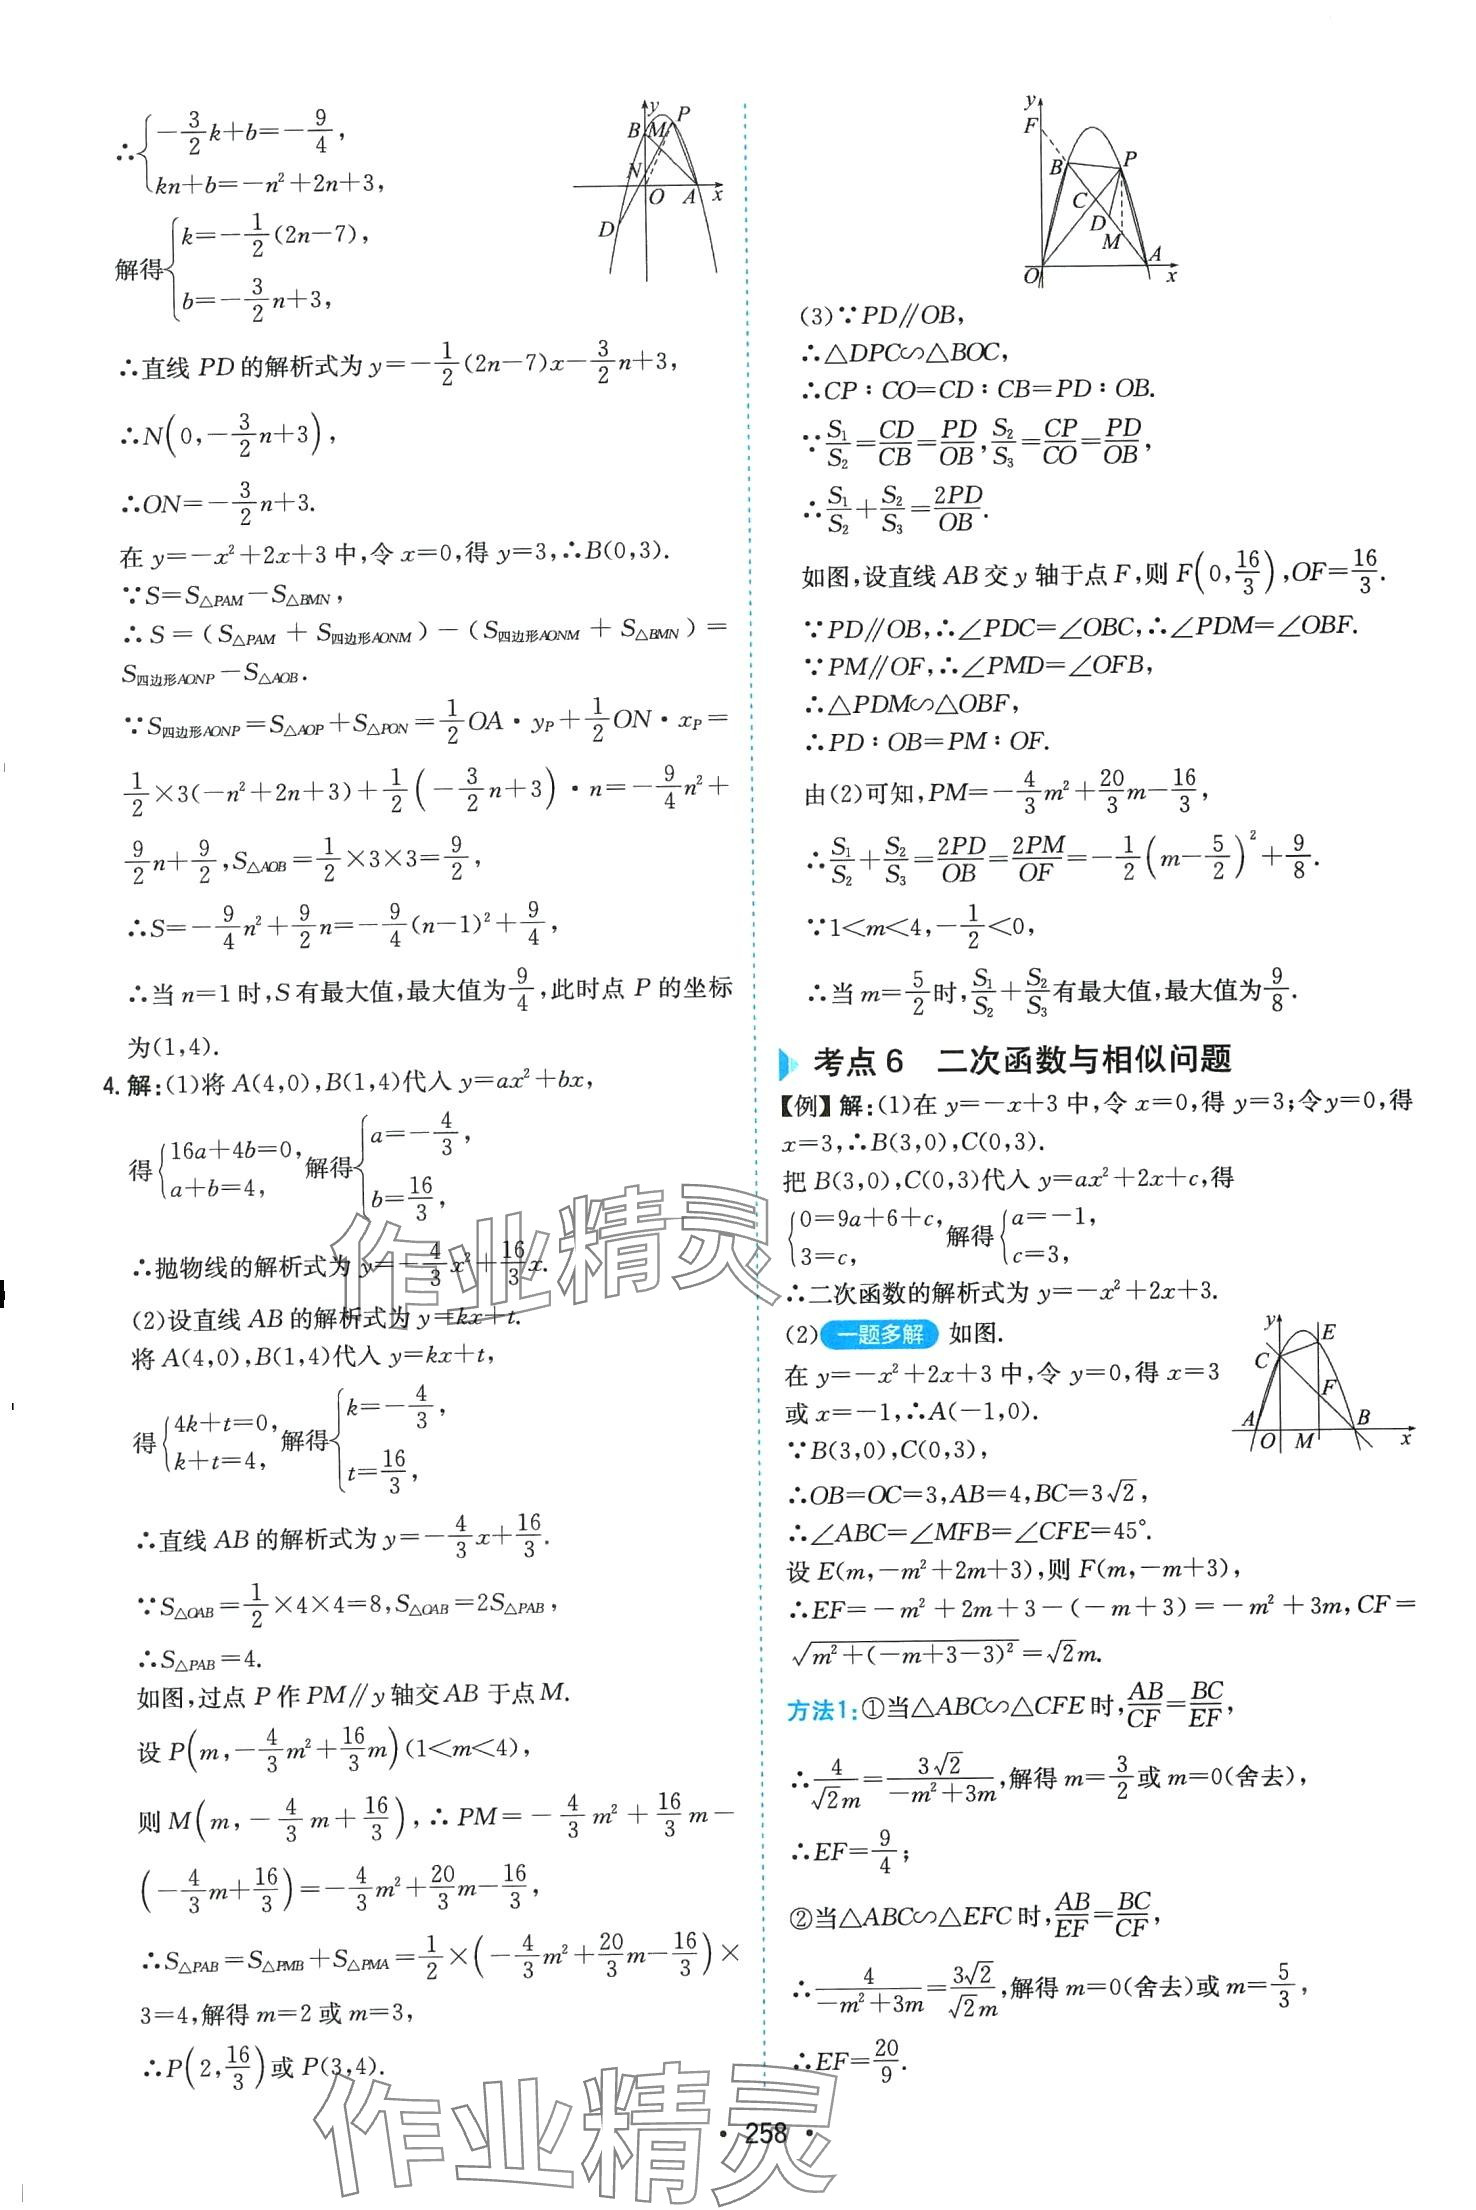 ∴{-3/2k+b=-9/4,
kn+b=-n²+2n+3,
解得{k=-1/2(2n-7),
b=-3/2n+3,
∴直线 PD 的解析式为 y=-1/2(2n-7)x-3/2n+3,
∴N(0,-3/2n+3),
∴ON=-3/2n+3.
在 y=-x²+2x+3 中,令 x=0,得 y=3,∴B(0,3).
∵S=S△PAM-S△BMN,
∴S=(S△PAM+S四边形AONM)-(S四边形AONM+S△BMN)=
S四边形AONP-S△AOB.
∵S四边形AONP=S△AOP+S△PON=1/2OA·yP+1/2ON·xP=
1/2×3(-n²+2n+3)+1/2(-3/2n+3)·n=-9/4n²+
9/2n+9/2,S△AOB=1/2×3×3=9/2,
∴S=-9/4n²+9/2n=-9/4(n-1)²+9/4,
∴当 n=1 时,S 有最大值,最大值为9/4,此时点 P 的坐标
为(1,4).
4. 解:(1)将 A(4,0),B(1,4)代入 y=ax²+bx,
得{16a+4b=0, a+b=4, 解得{a=-4/3, b=16/3,
∴抛物线的解析式为 y=-4/3x²+16/3x.
(2)设直线 AB 的解析式为 y=kx+t.
将 A(4,0),B(1,4)代入 y=kx+t,
得{4k+t=0, k+t=4, 解得{k=-4/3, t=16/3,
∴直线 AB 的解析式为 y=-4/3x+16/3.
∵S△OAB=1/2×4×4=8,S△OAB=2S△PAB,
∴S△PAB=4.
如图,过点 P 作 PM∥y 轴交 AB 于点 M.
设 P(m,-4/3m²+16/3m)(1<m<4),
则 M(m,-4/3m+16/3),∴PM=-4/3m²+16/3m-
(-4/3m+16/3)=-4/3m²+20/3m-16/3,
∴S△PAB=S△PMB+S△PMA=1/2×(-4/3m²+20/3m-16/3)×
3=4,解得 m=2 或 m=3,
∴P(2,16/3)或 P(3,4).
y
B
M
P
N
O
A
x
D
y
F
B
P
C
D
M
O
A
x
(3)∵PD∥OB,
∴△DPC∽△BOC,
∴CP∶CO=CD∶CB=PD∶OB.
∵S₁/S₂=CD/CB=PD/OB,S₂/S₃=CP/CO=PD/OB,
∴S₁/S₂+S₂/S₃=2PD/OB.
如图,设直线 AB 交 y 轴于点 F,则 F(0,16/3),OF=16/3.
∵PD∥OB,∴∠PDC=∠OBC,∴∠PDM=∠OBF.
∵PM∥OF,∴∠PMD=∠OFB,
∴△PDM∽△OBF,
∴PD∶OB=PM∶OF.
由(2)可知,PM=-4/3m²+20/3m-16/3,
∴S₁/S₂+S₂/S₃=2PD/OB=2PM/OF=-1/2(m-5/2)²+9/8.
∵1<m<4,-1/2<0,
∴当 m=5/2时,S₁/S₂+S₂/S₃有最大值,最大值为9/8.
考点 6 二次函数与相似问题
【例】解:(1)在 y=-x+3 中,令 x=0,得 y=3;令y=0,得
x=3,∴B(3,0),C(0,3).
把 B(3,0),C(0,3)代入 y=ax²+2x+c,得
{0=9a+6+c, 3=c, 解得{a=-1, c=3,
∴二次函数的解析式为 y=-x²+2x+3.
(2) 一题多解 如图.
在 y=-x²+2x+3 中,令 y=0,得 x=3
或 x=-1,∴A(-1,0).
∵B(3,0),C(0,3),
y
E
C
F
A
O
M
B
x
∴OB=OC=3,AB=4,BC=3√2,
∴∠ABC=∠MFB=∠CFE=45°.
设 E(m,-m²+2m+3),则 F(m,-m+3),
∴EF=-m²+2m+3-(-m+3)=-m²+3m,CF=
√(m²+(-m+3-3)²)=√2m.
方法1:①当△ABC∽△CFE 时,AB/CF=BC/EF,
∴4/(√2m)=3√2/(-m²+3m),解得 m=3/2或 m=0(舍去),
∴EF=9/4;
②当△ABC∽△EFC 时,AB/EF=BC/CF,
∴4/(-m²+3m)=3√2/(√2m),解得 m=0(舍去)或 m=5/3,
∴EF=20/9.
·258·
作业精灵
作业精灵